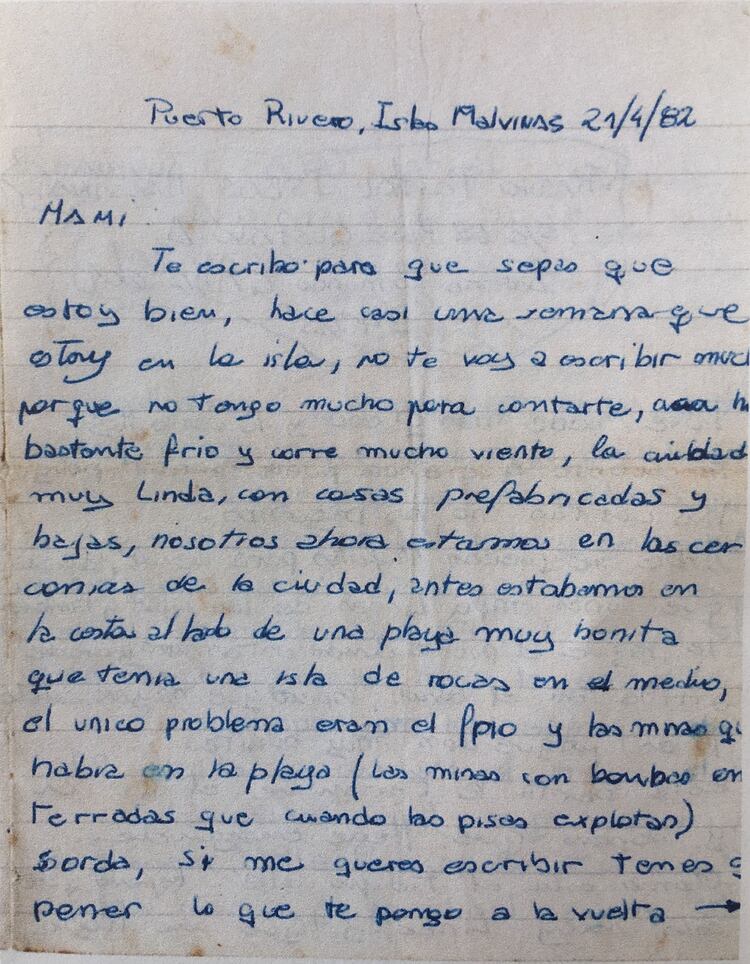 Puerto Rivero, Islas Malvinas 21/4/82
Mami
Te escribo para que sepas que
estoy bien, hace casi una semana que
estoy en la isla, no te voy a escribir muc
porque no tengo mucho para contarte, aca h
bastante frio y corre mucho viento, la ciudad
muy Linda, con casas prefabricadas y
bajas, nosotros ahora estamos en las cer
canias de la ciudad, antes estabamos en
la costa al lado de una playa muy bonita
que tenia una isla de rocas en el medio,
el unico problema eran el frio y las minas qu
habia en la playa (las minas son bombas en
terradas que cuando las pisas explotan)
Gorda, si me queres escribir tenes q
poner lo que te pongo a la vuelta →